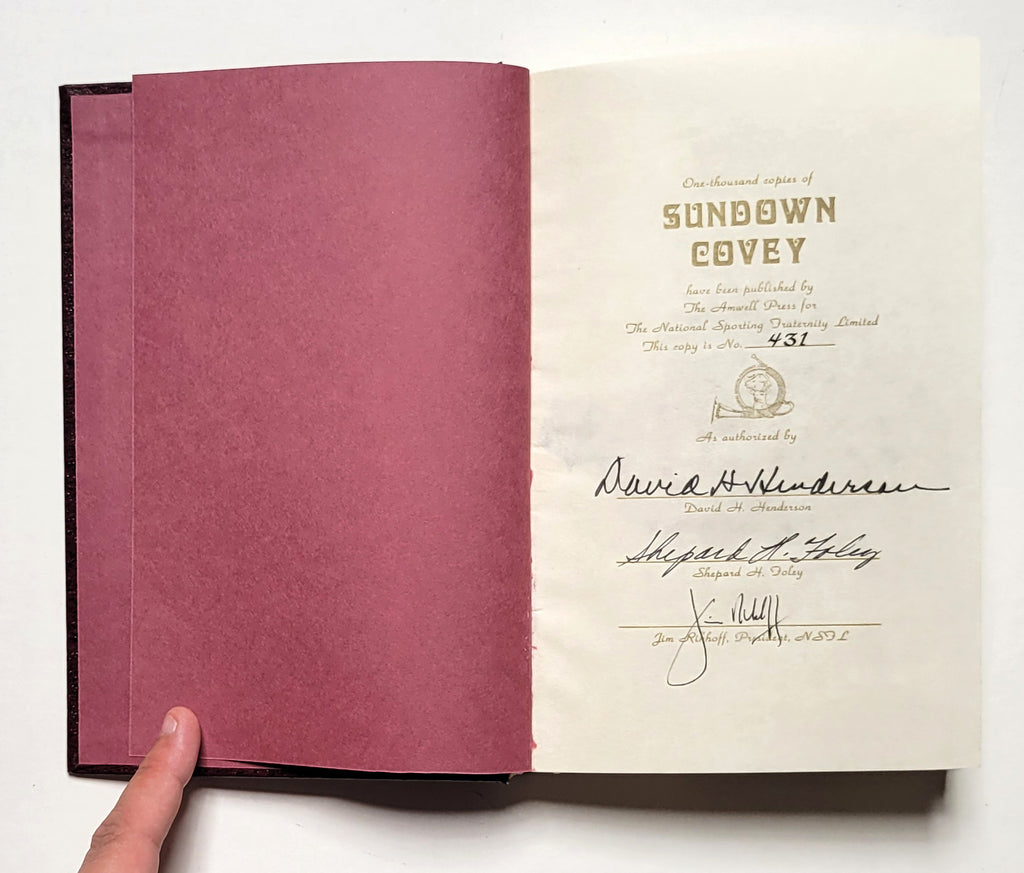 One-thousand copies of
SUNDOWN
COVEY
have been published by
The Amwell Press for
The National Sporting Fraternity Limited
This copy is No. 431
As authorized by
David H Henderson
David H. Henderson
Shepard H. Foley
Shepard H. Foley
Jim Rikhoff
Jim Rikhoff, President, NSFL